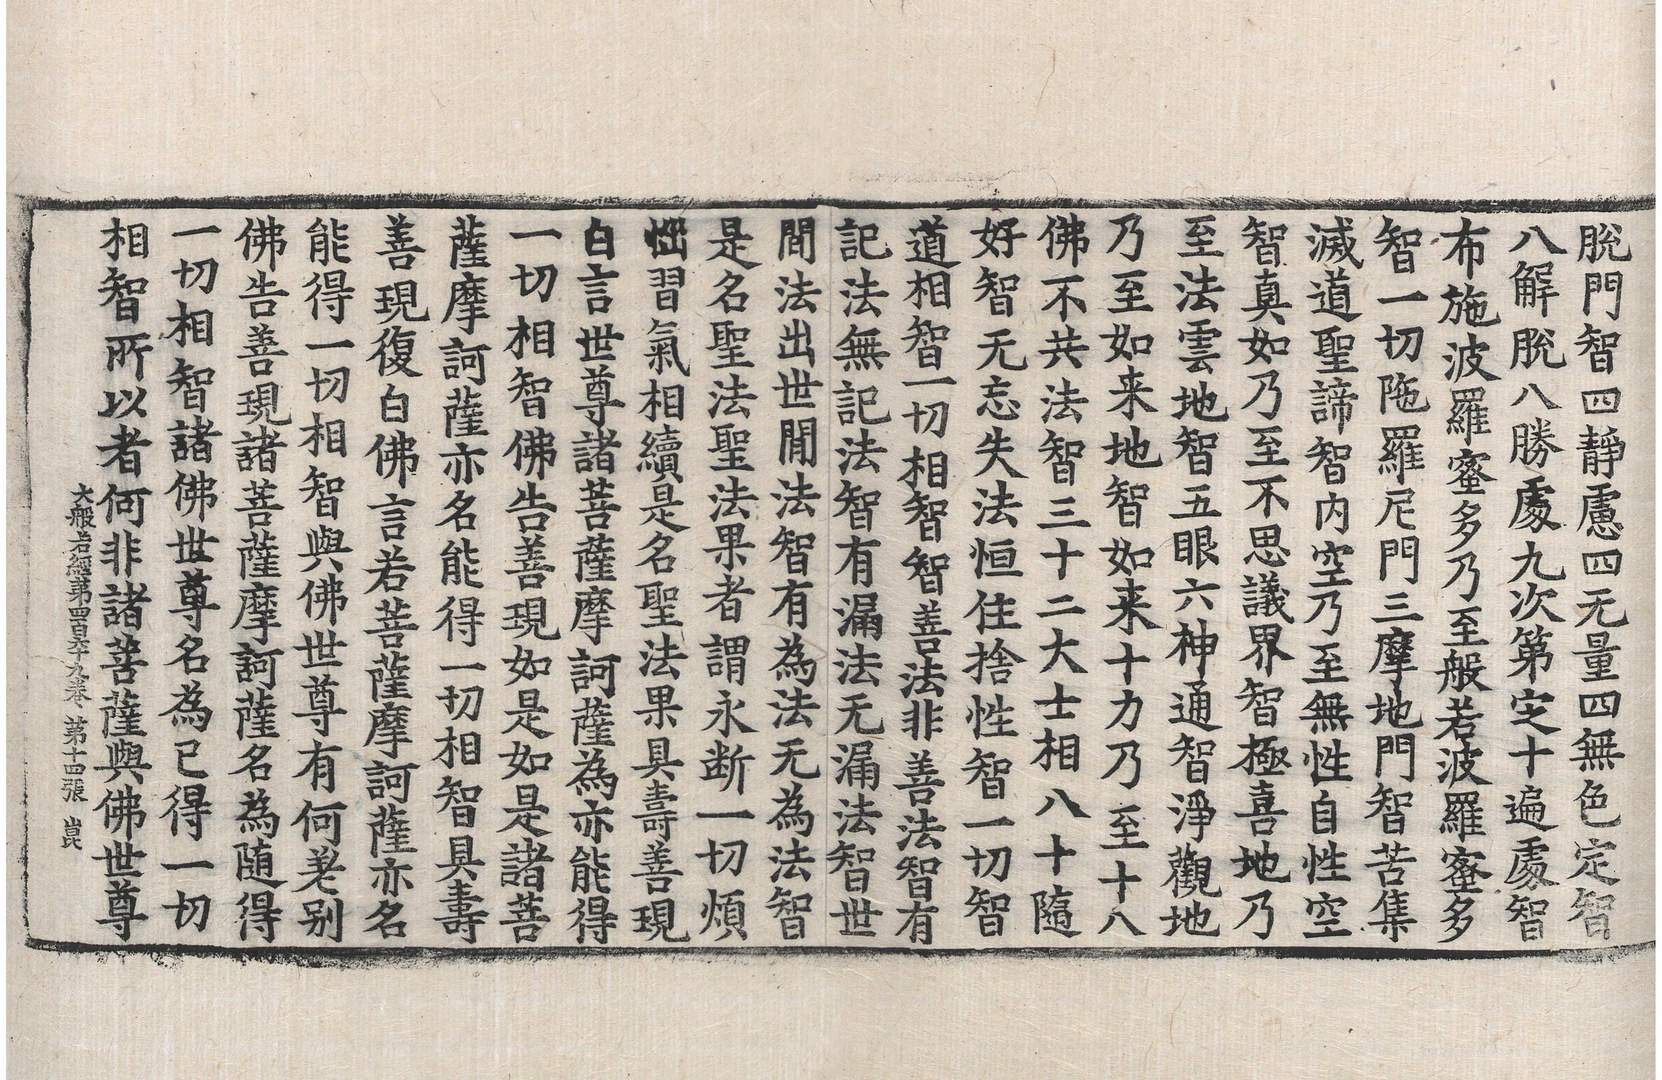 脫門智四靜慮四无量四無色定智
八解脫八勝處九次第定十遍處智
布施波羅蜜多乃至般若波羅蜜多
智一切陁羅尼門三摩地門智苦集
滅道聖諦智內空乃至無性自性空
智真如乃至不思議界智極喜地乃
至法雲地智五眼六神通智淨觀地
乃至如来地智如来十力乃至十八
佛不共法智三十二大士相八十隨
好智无忘失法恒住捨性智一切智
道相智一切相智智善法非善法智有
記法無記法智有漏法无漏法智世
間法出世間法智有為法无為法智
是名聖法聖法果者謂永断一切煩
惱習氣相續是名聖法果具壽善現
白言世尊諸菩薩摩訶薩為亦能得
一切相智佛告善現如是如是諸菩
薩摩訶薩亦名能得一切相智具壽
善現復白佛言若菩薩摩訶薩亦名
能得一切相智與佛世尊有何差別
佛告善現諸菩薩摩訶薩名為隨得
一切相智諸佛世尊名為已得一切
相智所以者何非諸菩薩與佛世尊
大般若經第四百六十九卷 第十四張 崑